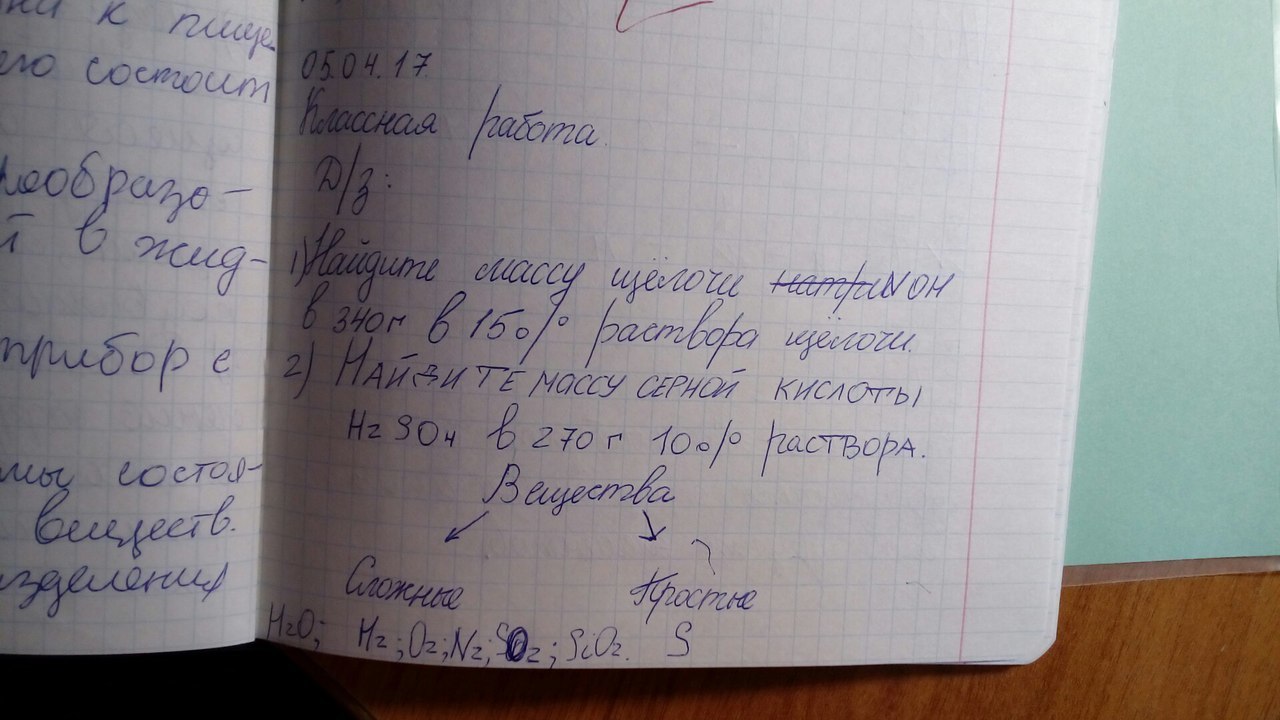 ни к пище
его состоит
реобразо-
й в жид-
прибор с
мы состоя-
веществ.
азделения
05.04.17
Классная работа.
Д/з:
1) Найдите массу щёлочи натри NOH
в 340г в 15% раствора щёлочи.
2) НАЙДИТЕ МАССУ СЕРНОЙ КИСЛОТЫ
H2SO4 в 270г 10% раствора.
Вещества
Сложные Простые
H2O; H2; O2; N2; SO2; SiO2. S